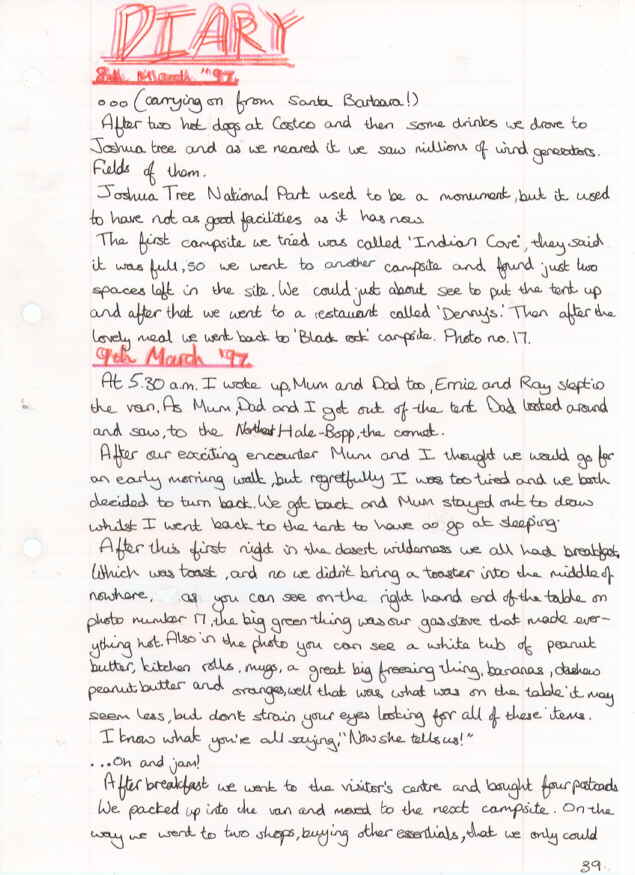 DIARY
8th March '97.
ooo (carrying on from Santa Barbara!)
After two hot dogs at Costco and then some drinks we drove to
Joshua tree and as we neared it we saw millions of wind generators.
Fields of them.
Joshua Tree National Park used to be a monument, but it used
to have not as good facilities as it has now.
The first campsite we tried was called 'Indian Cove', they said
it was full, so we went to another campsite and found just two
spaces left in the site. We could just about see to put the tent up
and after that we went to a restaurant called 'Denny's.' Then after the
lovely meal we went back to 'Black rock' campsite. Photo no. 17.
9th March '97.
At 5.30 a.m. I woke up, Mum and Dad too, Ernie and Ray slept in
the van. As Mum, Dad and I got out of the tent Dad looked around
and saw, to the Northeast Hale-Bopp, the comet.
After our exciting encounter Mum and I thought we would go for
an early morning walk, but regretfully I was too tired and we both
decided to turn back. We got back and Mum stayed out to draw
whilst I went back to the tent to have a go at sleeping.
After this first night in the desert wilderness we all had breakfast,
Which was toast, and no we didn't bring a toaster into the middle of
nowhere, as you can see on the right hand end of the table on
photo number 17, the big green thing was our gas stove that made ever-
ything hot. Also in the photo you can see a white tub of peanut
butter, kitchen rolls, mugs, a great big freezing thing, bananas, cashew
peanut butter and oranges, well that was what was on the table it may
seem less, but don't strain your eyes looking for all of these items.
I know what you're all saying, "Now she tells us!"
...Oh and jam!
After breakfast we went to the visitor's centre and bought four postcards
We packed up into the van and moved to the next campsite. On the
way we went to two shops, buying other essentials, that we only could
39.